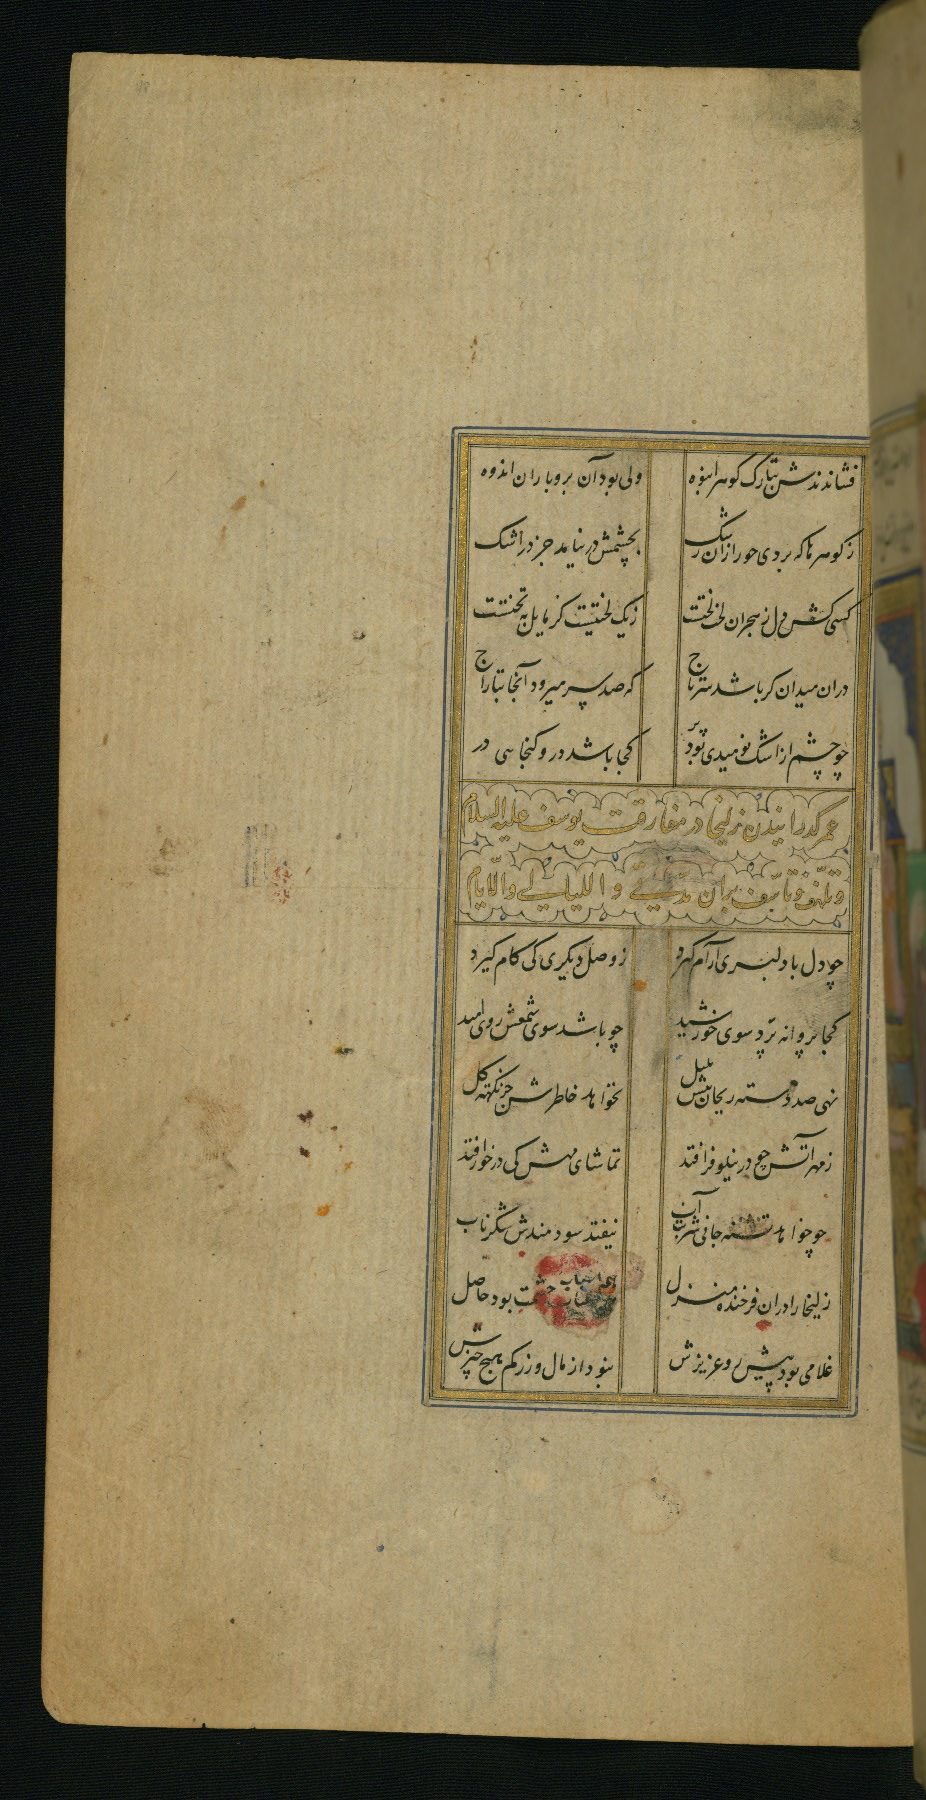 فشاندندش بتارک گوهر انبوه ولی بود آن برو باران اندوه
ز کوهرها که بردی حور ازان رشک بچشمش در نیامد جز در اشک
کسی کش دل ز هجران لخت لختست ز یک لختیست کر مایل به تختست
دران میدان کر باشد سر تاج که صد سر میرود آنجا بتاراج
چو چشم از اشک نومیدی بود پر کجا باشد درو کنجایی در
عمر کذرانیدن زلیخا در مفارقت یوسف علیه السلام
و تلهف و تاسف بران مدتی و اللیالی والایام
چو دل با دلبری آرام کیرد ز وصل دیکری کی کام کیرد
کجا پروانه پرد سوی خورشید چو باشد سوی شمعش روی امید
نهی صد دسته ریحان پیش بلبل نخواهد خاطرش جز نکهت کل
ز مهر آتش چو در نیلوفر افتد تماشای مهش کی در خور افتد
چو خواهد تشنه جانی شربت آب نیفتد سودمندش شکر ناب
زلیخا را دران فرخنده منزل همه اسباب حشمت بود حاصل
غلامی بود پیش رو عزیزش نبود از مال و زر کم هیچ چیزش